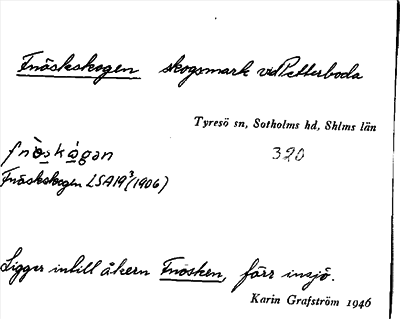 Fnöskskogen skogsmark vid Petterboda
Tyresö sn, Sotholms hd, Shlms län
fnö̀skógan 320
Fnöskskogen LSA19³ (1906)
Ligger intill åkern Fnösken, förr insjö.
Karin Grafström 1946